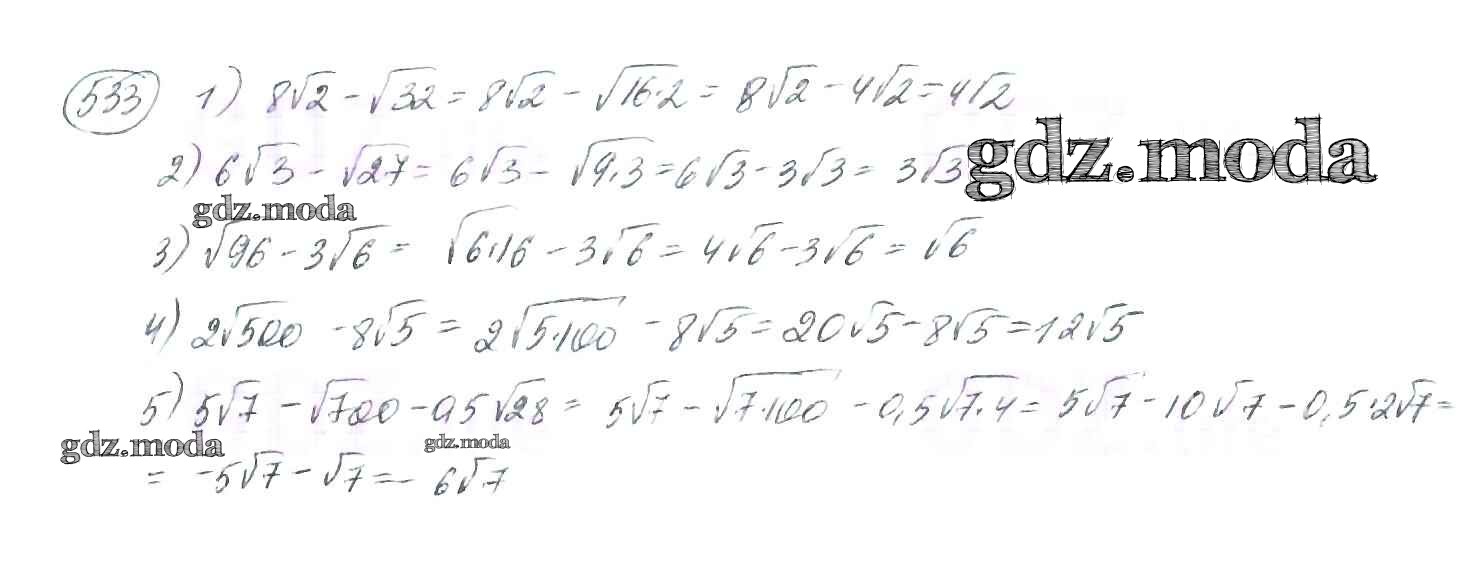 533 1) 8√2 - √32 = 8√2 - √16·2 = 8√2 - 4√2 = 4√2
gdz.moda
2) 6√3 - √27 = 6√3 - √9·3 = 6√3 - 3√3 = 3√3
gdz.moda
3) √96 - 3√6 = √6·16 - 3√6 = 4√6 - 3√6 = √6
4) 2√500 - 8√5 = 2√5·100 - 8√5 = 20√5 - 8√5 = 12√5
5) 5√7 - √700 - 0,5√28 = 5√7 - √7·100 - 0,5√7·4 = 5√7 - 10√7 - 0,5·2√7 =
gdz.moda
gdz.moda
= -5√7 - √7 = - 6√7